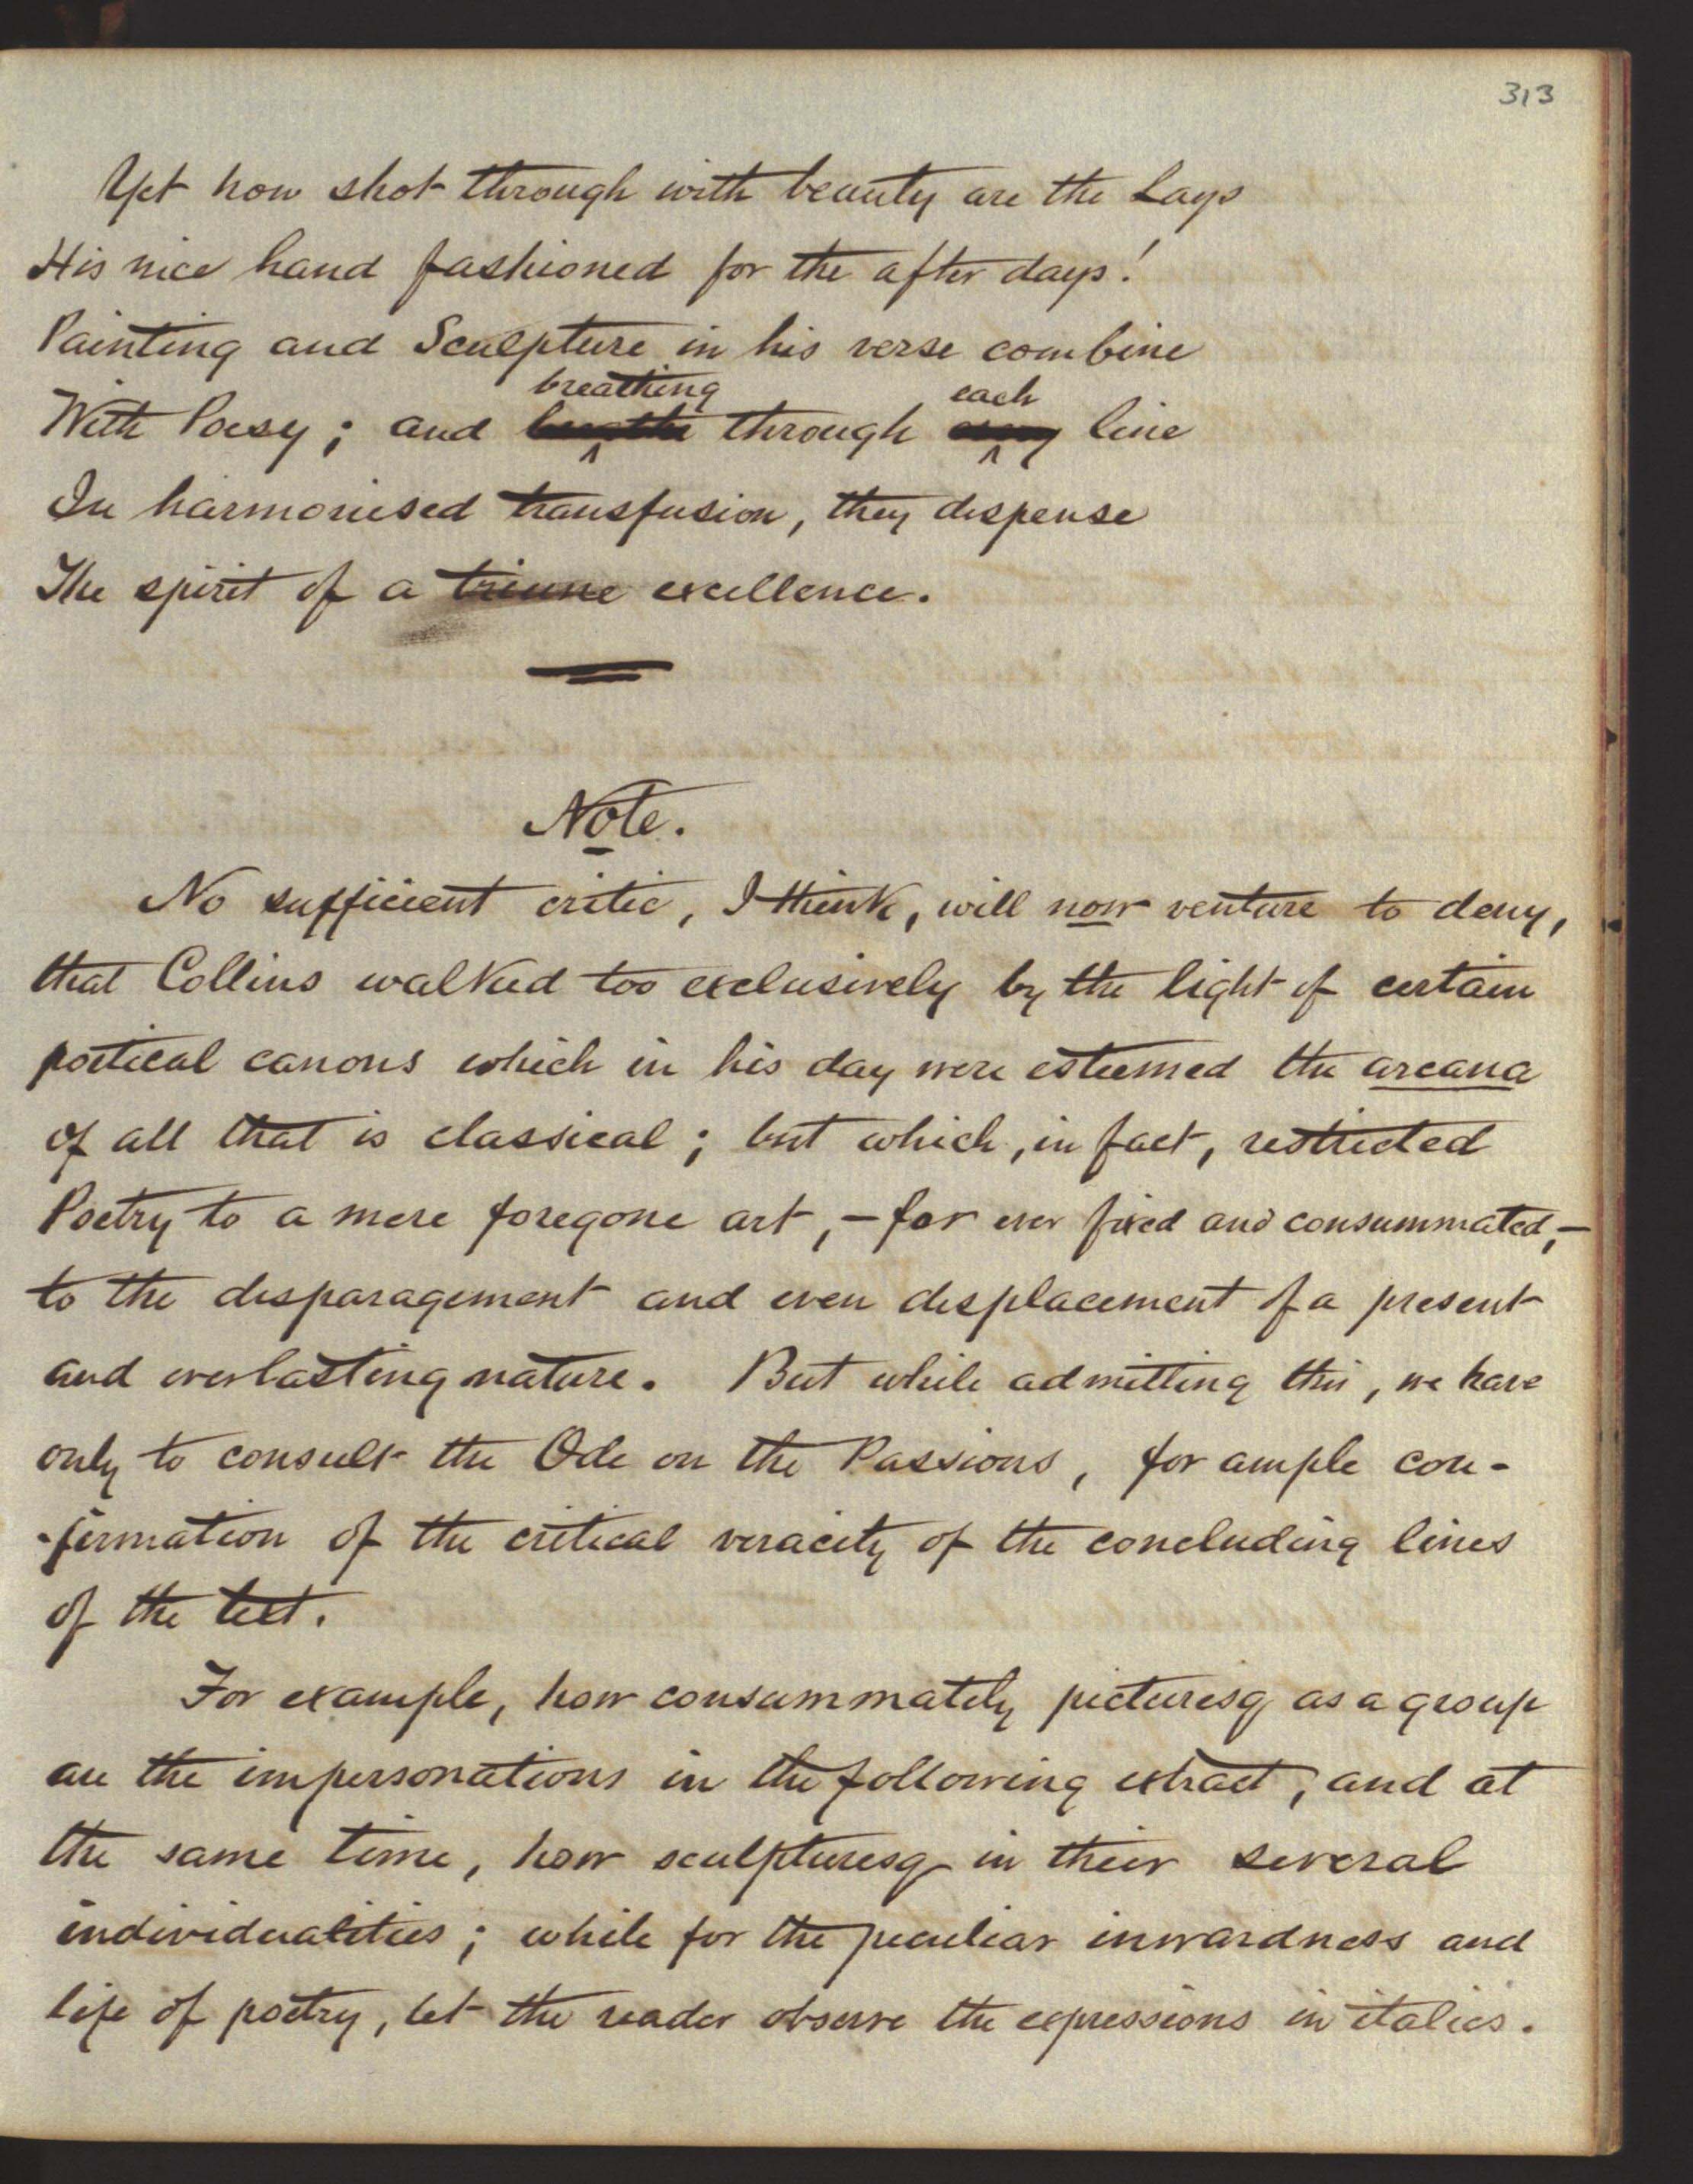 313
Yet how shot through with beauty are the Lays
His nice hand fashioned for the after days!
Painting and Sculpture in his verse combine
breathing each
With Poesy; and breathe through every line
In harmonised transfusion, they dispense
The spirit of a triune excellence.
Note.
No sufficient critic, I think, will now venture to deny,
that Collins walked too exclusively by the light of certain
poetical canons which in his day were esteemed the arcana
of all that is classical; but which, in fact, restricted
Poetry to a mere foregone art, – for ever fixed and consummated, –
to the disparagement and even displacement of a present
and everlasting nature. But while admitting this, we have
only to consult the Ode on the Passions, for ample con-
-firmation of the critical veracity of the concluding lines
of the text.
For example, how consummately picturesq as a group
are the impersonations in the following extract, and at
the same time, how sculpturesq in their several
individualities; while for the peculiar inwardness and
life of poetry, let the reader observe the expressions in italics.